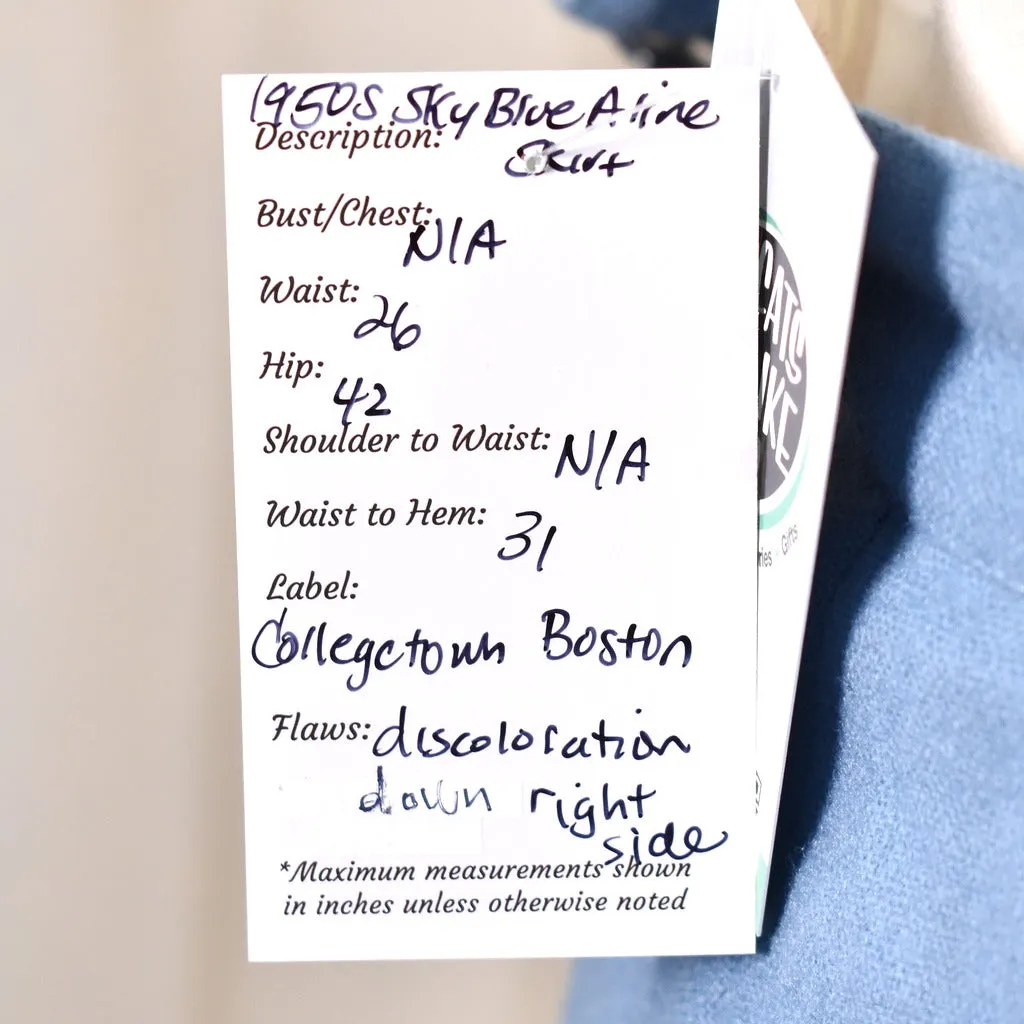 1950s Sky Blue A-line
Description:
Skirt
Bust/Chest:
N/A
Waist:
26
Hip:
42
Shoulder to Waist: N/A
Waist to Hem: 31
Label:
Collegetown Boston
Flaws: discoloration
down right
side
*Maximum measurements shown
in inches unless otherwise noted
CATS
IKE
Gifts